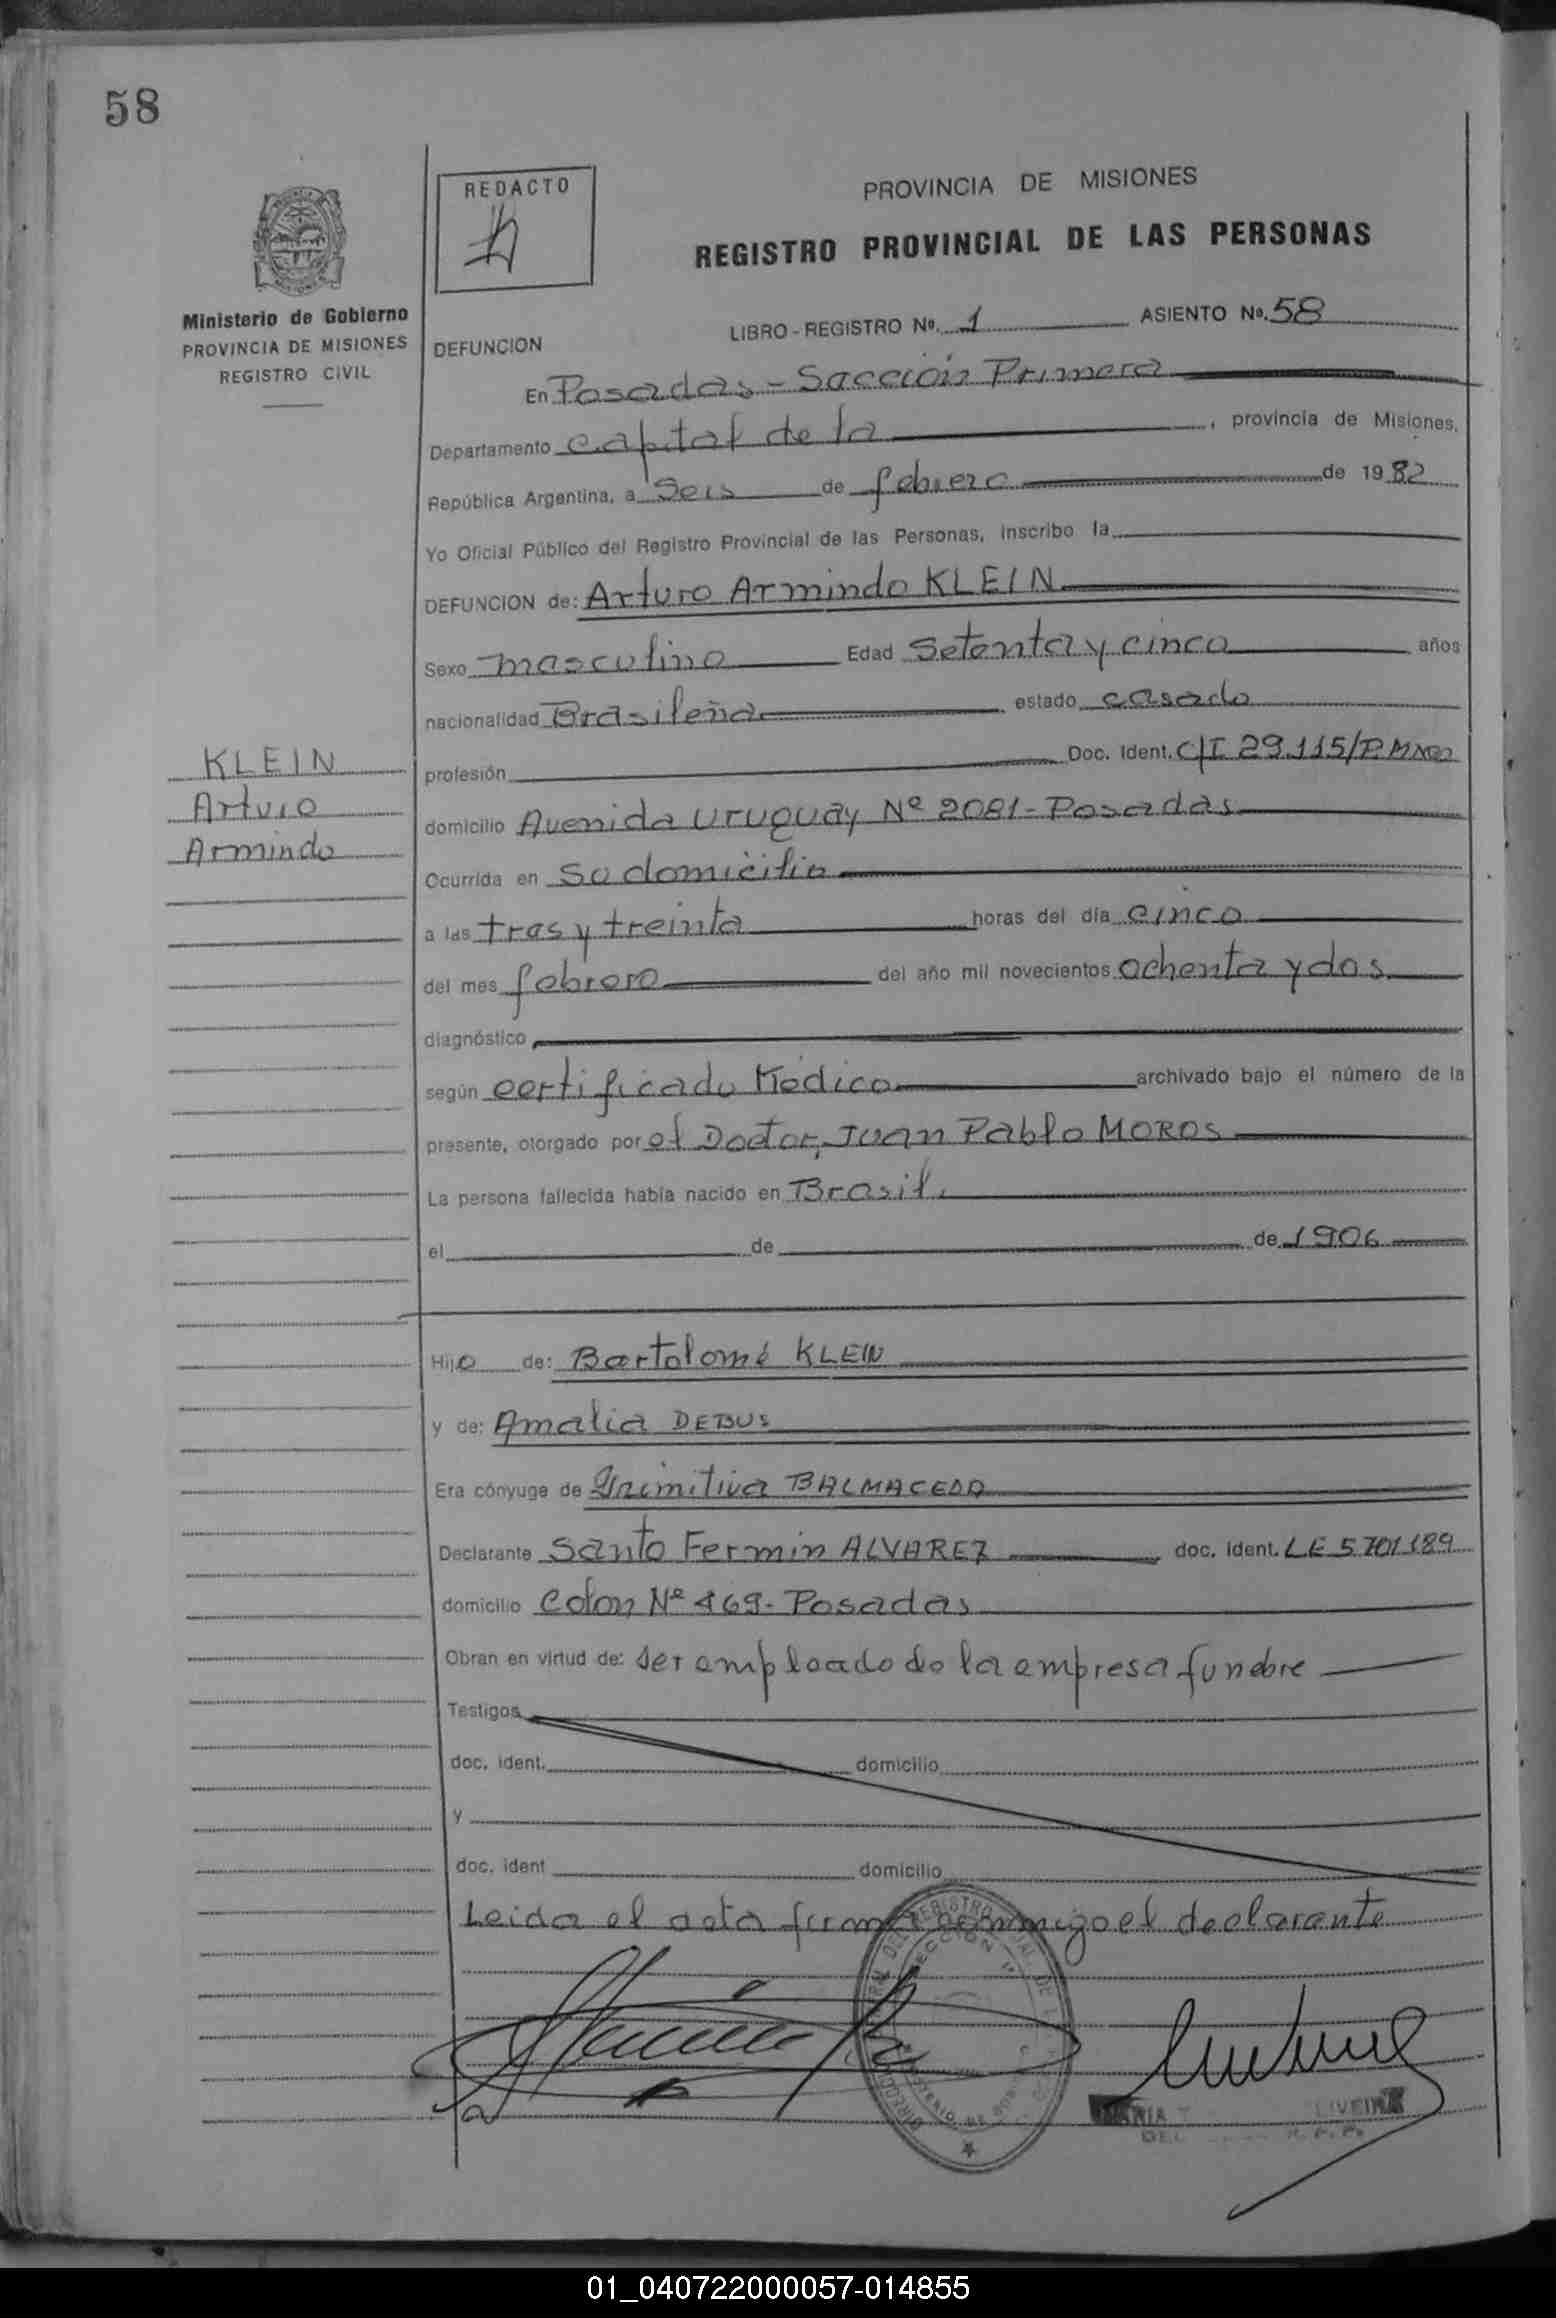 58
REDACTO
PROVINCIA DE MISIONES
REGISTRO PROVINCIAL DE LAS PERSONAS
Ministerio de Gobierno
PROVINCIA DE MISIONES
REGISTRO CIVIL
LIBRO - REGISTRO Nº. 1 ASIENTO Nº. 58
DEFUNCION
En Posadas - Sección Primera
Departamento Capital de la, provincia de Misiones,
República Argentina, a Seis de febrero de 1982
Yo Oficial Público del Registro Provincial de las Personas, inscribo la
DEFUNCION de: Arturo Armindo KLEIN
Sexo masculino Edad Setenta y cinco años
nacionalidad Brasileña estado casado
KLEIN
Arturo
Armindo
profesión Doc. Ident. C/I 29.115/P.
domicilio Avenida Uruguay Nº 2081 - Posadas
Ocurrida en Su domicilio
a las tres y treinta horas del día cinco
del mes febrero del año mil novecientos ochenta y dos
diagnóstico
según certificado Médico archivado bajo el número de la
presente, otorgado por el Doctor, Juan Pablo MOROS
La persona fallecida había nacido en Brasil.
el de de 1906
Hijo de: Bartolomé KLEIN
y de: Amalia DEBUS
Era cónyuge de Primitiva BALMACEDA
Declarante Santo Fermin ALVAREZ doc. ident. LE 5701189
domicilio Colon Nº 469 - Posadas
Obran en virtud de: ser empleado de la empresa funebre
Testigos
doc. ident. domicilio
y
doc. ident domicilio
Leida el acta firma conmigo el declarante